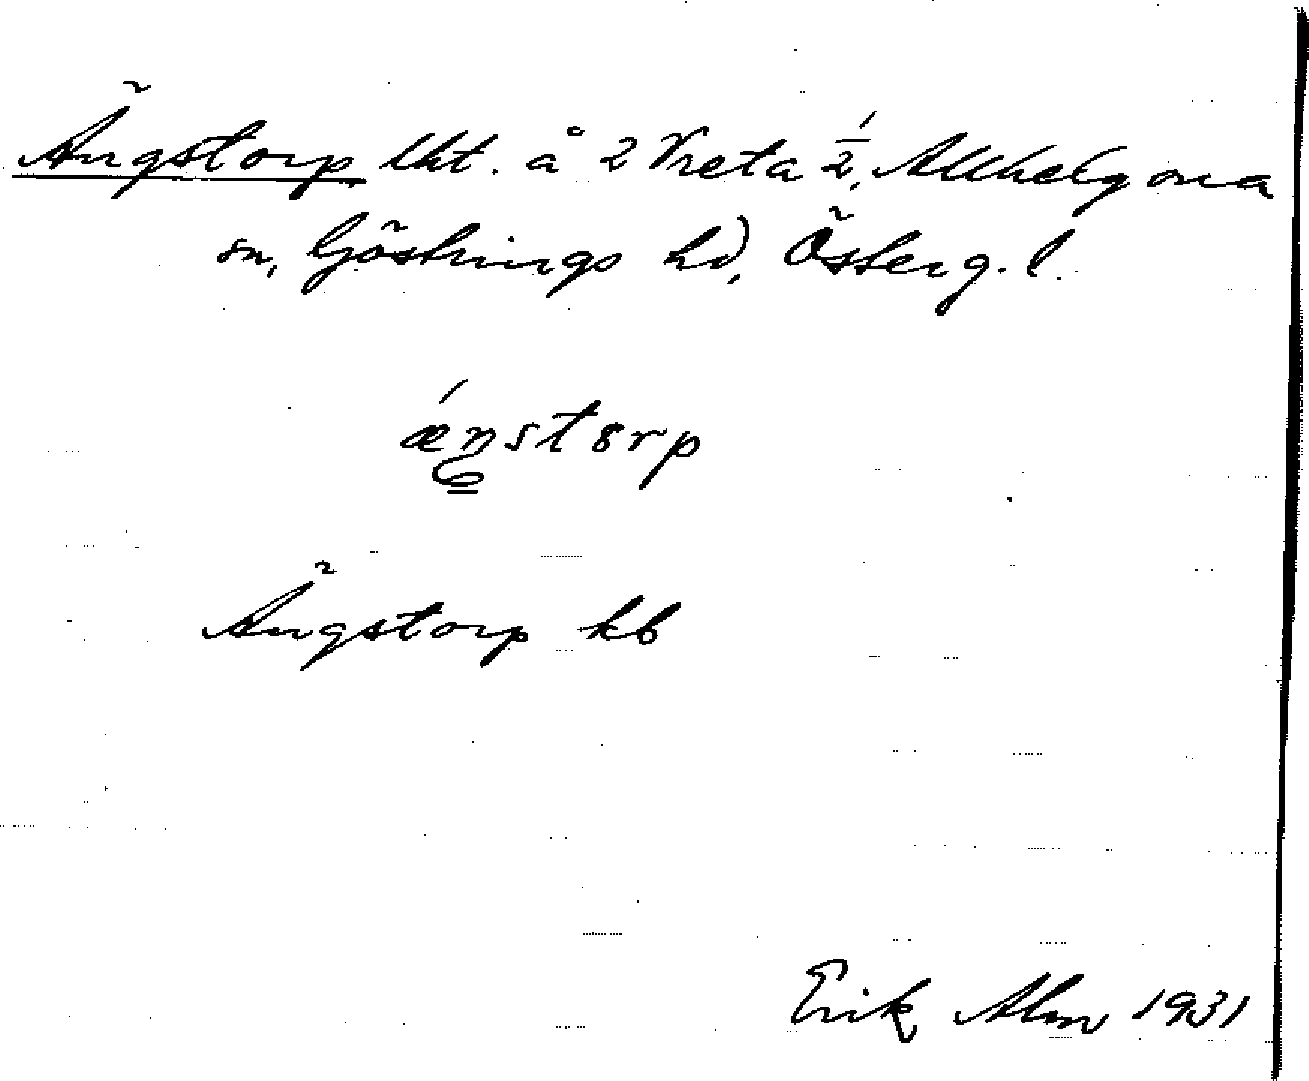 Ängstorp lht. å 2 Vreta ½, Allhelgona
sn, Göstrings hd, Österg. l.
ǽŋstɔrp
Ängstorp kb
Erik Alm 1931